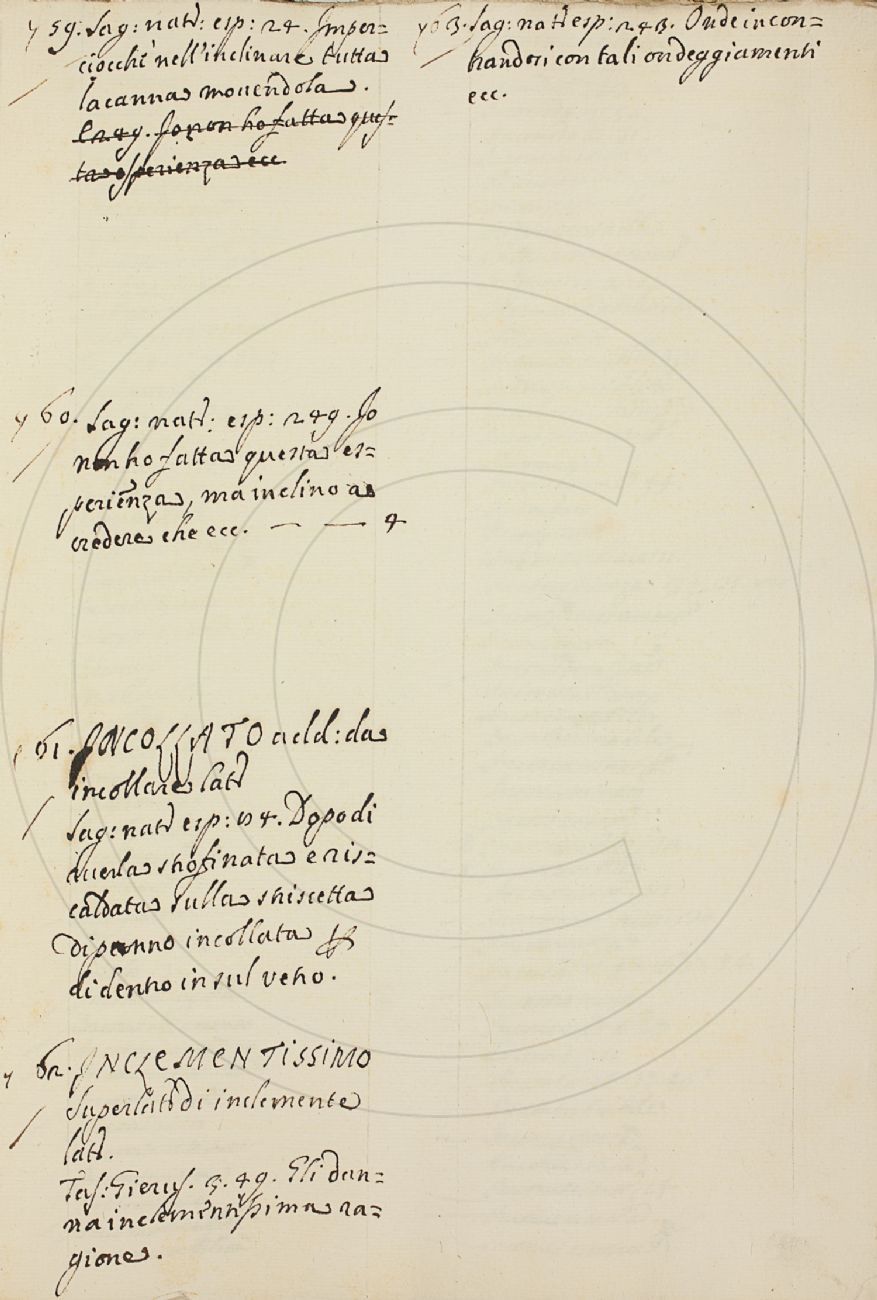 y 59. Sag: nat: esp: 24. Imper=
ciocchè nell'inclinare tutta
la canna movendola.
E 249. Io non ho fatta ques-
ta esperienza ecc
y 60. Sag: nat: esp: 249. Io
non ho fatta questa es=
perienza, ma inclino a
credere che ecc. — — 4
y 61. INCOLLATO add: da
incollare lat
Sag: nat esp: 4. Dopo di
averla strofinata e ris=
caldata sulla striscetta
di panno incollata
di dentro in sul vetro.
y 62. INCLEMENTISSIMO
Superlat di inclemente
lat.
Tas: Gierus. 3. 49. Gli dan=
na inclementissima ra=
gione.
y 63. Sag: nat esp: 243. Onde incon=
trandosi con tali ondeggiamenti
ecc.